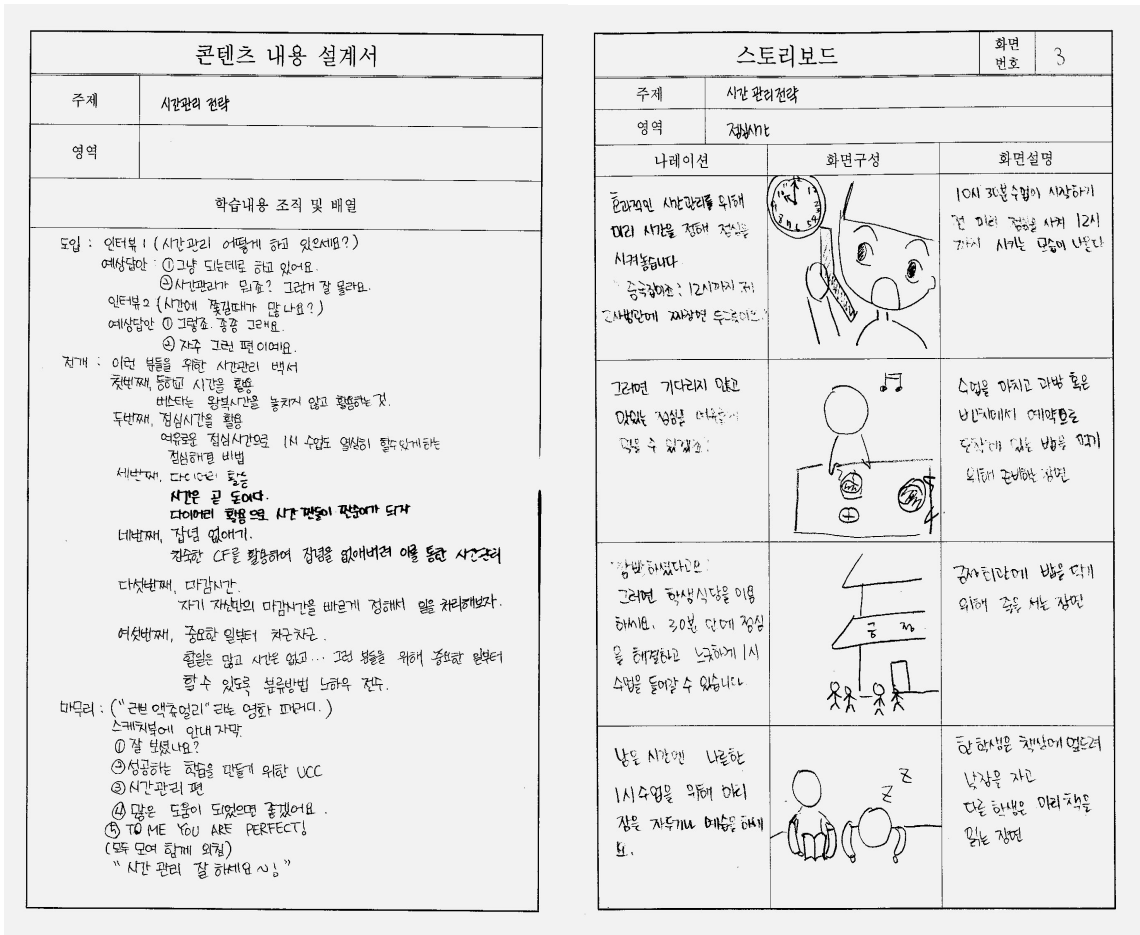 콘텐츠 내용 설계서
주제
시간관리 전략
영역
학습내용 조직 및 배열
도입 : 인터뷰 1 (시간관리 어떻게 하고 있으세요?)
예상답안 : ① 그냥 되는데로 하고 있어요.
② 시간관리가 뭐죠? 그런거 잘 몰라요.
인터뷰 2 (시간에 쫓길때가 많나요?)
예상답안 ① 그렇죠. 종종 그래요.
② 자주 그런 편이예요.
전개 : 이런 분들을 위한 시간관리 백서
첫번째, 등하교 시간을 활용
버스타는 왕복시간을 놓치지 않고 활용하는 것.
두번째, 점심시간을 활용
여유로운 점심시간으로 1시 수업도 열심히 할수있게하는
점심해결 비법
세번째, 다이어리 활용
시간은 곧 돈이다.
다이어리 활용으로 시간 짠돌이 짠순이가 되자
네번째, 잡념 없애기.
친숙한 CF를 활용하여 잡념을 없애버려 이를 통한 시간관리
다섯번째, 마감시간.
자기 자신만의 마감시간을 빠르게 정해서 일을 처리해보자.
여섯번째, 중요한 일부터 차근차근.
할일은 많고 시간은 없고... 그런 분들을 위해 중요한 일부터
할 수 있도록 분류방법 노하우 전수.
마무리 : ("러브 액츄얼리" 라는 영화 패러디.)
스케치북에 안내자막
① 잘 보셨나요?
② 성공하는 학습을 만들기 위한 UCC
③ 시간관리 편
④ 많은 도움이 되었으면 좋겠어요.
⑤ TO ME YOU ARE PERFECT!
(모두 모여 함께 외침)
" 시간 관리 잘 하세요~! "
스토리보드
화면
번호
3
주제
시간 관리전략
영역
점심시간
나레이션
화면구성
화면설명
효과적인 시간관리를 위해
미리 시간을 정해 점심을
시켜놓습니다
중국집이죠 : 12시까지 제
2사범관에 짜장면 두그릇이요.
10시 30분 수업이 시작하기
전 미리 점심을 사켜 12시
까지 시키는 모습이 나온다
그러면 기다리지 않고
맛있는 점심을
먹을 수 있겠죠.
수업을 마치고 과방 혹은
벤치에서 예약으로
도착해 있는 밥을 먹기
위해 준비하는 장면
그러면 학생식당을 이용
하세요. 30분 안에 점심
을 해결하고 느긋하게 1시
수업을 들어갈 수 있습니다.
금정
금정회관에 밥을 먹기
위해 줄을 서는 장면
남는 시간엔 나른한
1시수업을 위해 미리
잠을 자두거나 예습을 하세
요.
Z
Z
한 학생은 책상에 엎드려
낮잠을 자고
다른 학생은 미리 책을
읽는 장면